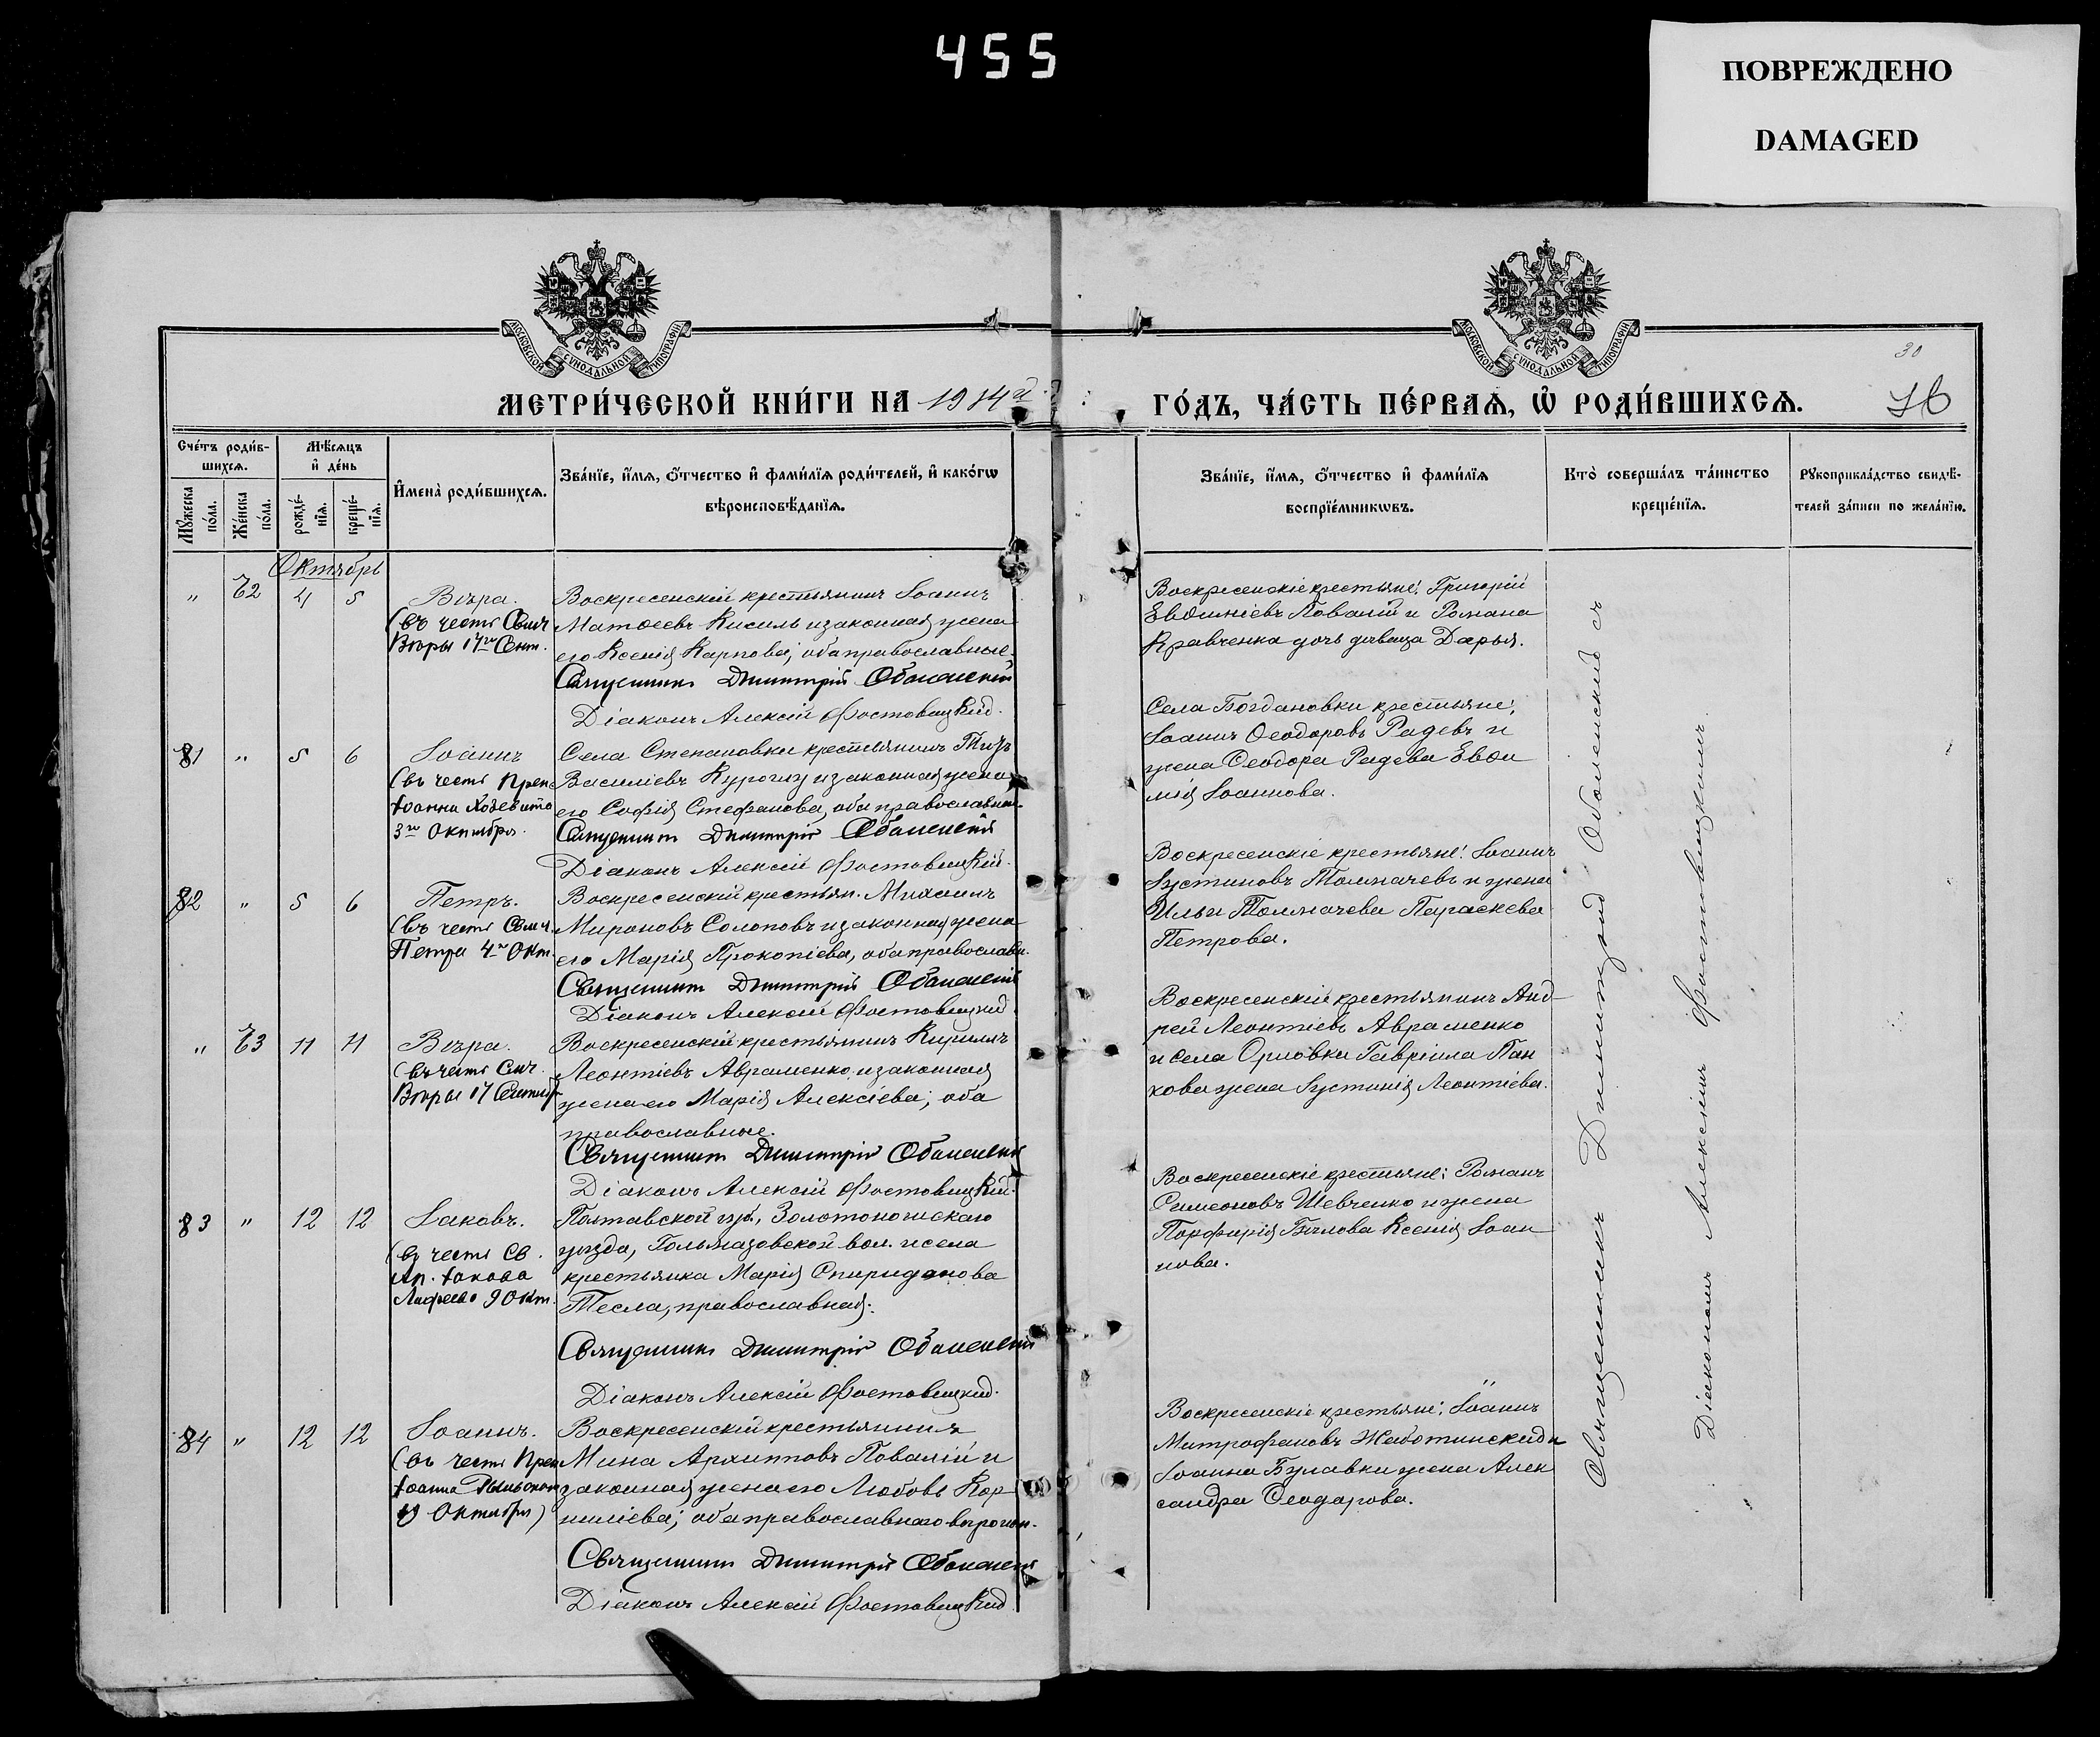 455
ПОВРЕЖДЕНО
DAMAGED
МОСКОВСКОЙ СѴНОДАЛЬНОЙ ТИПОГРАФІИ
МОСКОВСКОЙ СѴНОДАЛЬНОЙ ТИПОГРАФІИ
30
МЕТРИ́ЧЕСКОЙ КНИ́ГИ НА 1914й
ГО́ДЪ, ЧА́СТЬ ПЕ́РВАѦ, Ѡ РОДИ́ВШИХСѦ.
Сче́тъ роди́в-
шихсѧ.
Мѣ́сѧцъ
и҆ де́нь
Мꙋ́жеска
по́ла.
Же́нска
по́ла.
рожде́-
нїѧ.
креще́-
нїѧ.
И҆мена̀ роди́вшихсѧ.
Зва́нїе, и҆́мѧ, ѻ҆́тчество и҆ фами́лїѧ роди́телей, и҆ како́гѡ
вѣроисповѣ́данїѧ.
Зва́нїе, и҆́мѧ, ѻ҆́тчество и҆ фами́лїѧ
воспрїе́мникѡвъ.
Кто̀ соверша́лъ та́инство
креще́нїѧ.
Рꙋкоприкла́дство свидѣ́-
телей за́писи по жела́нїю.
Октябрь
" 72 4 5 Вѣра.
(въ честь Свмч
Вѣры 17го Сент.
Воскресенскій крестьянинъ Іоаннъ
Матѳеевъ Кисиль и законная жена
его Ксенія Карпова; оба православные.
Священникъ Димитрій Оболенскій
Діаконъ Алексій Фостовицкій.
Воскресенскіе крестьяне: Григорій
Евѳиміевъ Повалій и Романа
Кравченка дочь дѣвица Дарья.
81 " 5 6 Іоаннъ
(въ честь Преп
Іоанна Хозевита
3го Октября.
Села Степановки крестьянинъ Титъ
Василіевъ Курочку и законная жена
его Софія Стефанова, оба православные.
Священникъ Димитрій Оболенскій
Діаконъ Алексій Фостовицкій.
Села Богдановки крестьяне:
Іоаннъ Ѳеодоровъ Радевъ и
жена Ѳеодора Радева Евѳи
мія Іоаннова.
82 " 5 6 Петръ.
(въ честь Свмч.
Петра 4го Окт.
Воскресенскій крестьян. Михаилъ
Мироновъ Солоповъ и законная жена
его Марія Прокопіева, оба православн.
Священникъ Димитрій Оболенскій
Діаконъ Алексій Фостовицкій
Воскресенскіе крестьяне: Іоаннъ
Іустиновъ Толмачевъ и жена
Ильи Толмачева Параскева
Петрова.
" 73 11 11 Вѣра.
(въ честь Смч.
Вѣры 17 Сентября
Воскресенскій крестьянинъ Кириллъ
Леонтіевъ Авраменко и законная
жена его Марія Алексіева; оба
православные.
Священникъ Димитрій Оболенскій
Діаконъ Алексій Фостовицкій.
Воскресенскій крестьянинъ Анд-
рей Леонтіевъ Авраменко
и села Орловки Гавріила Пан
кова жена Іустинія Леонтіева.
83 " 12 12 Іаковъ.
(въ честь Св.
Ап. Іакова
Алфеева 9 Окт.
Полтавской губ., Золотоношскаго
уѣзда, Гольмазовской вол. и села
крестьянка Марія Спиридонова
Тесла, православная.
Священникъ Димитрій Оболенскій
Діаконъ Алексій Фостовицкій.
Воскресенскіе крестьяне: Романъ
Симеоновъ Шевченко и жена
Порфирія Бѣлова Ксенія Іоан
нова.
84 " 12 12 Іоаннъ.
(въ честь Преп
Іоанна Рыльскаго
19 Октября)
Воскресенскій крестьянинъ
Мина Архипповъ Повалій и
законная жена его Любовь Кор-
ниліева; оба православнаго вѣроисп.
Священникъ Димитрій Оболенскій
Діаконъ Алексій Фостовицкій
Воскресенскіе крестьяне: Іоаннъ
Митрофановъ Жаботинскій и
Іоанна Булавки жена Алек
сандра Ѳеодорова.
Священникъ Димитрій Оболенскій съ
Діакономъ Алексіемъ Фостовицкимъ.